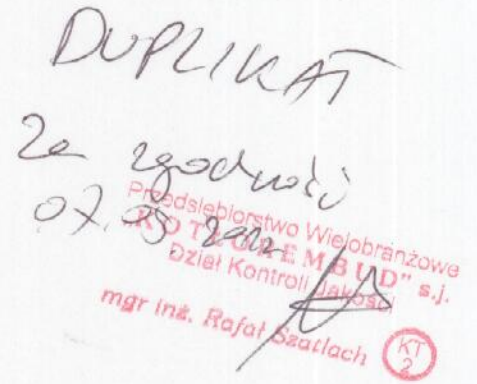 DUPLIKAT
Za zgodność
07.05.2022
Przedsiębiorstwo Wielobranżowe
s.j.
Dział Kontroli Jakości
mgr inż. Rafał Szatlach
KT
2